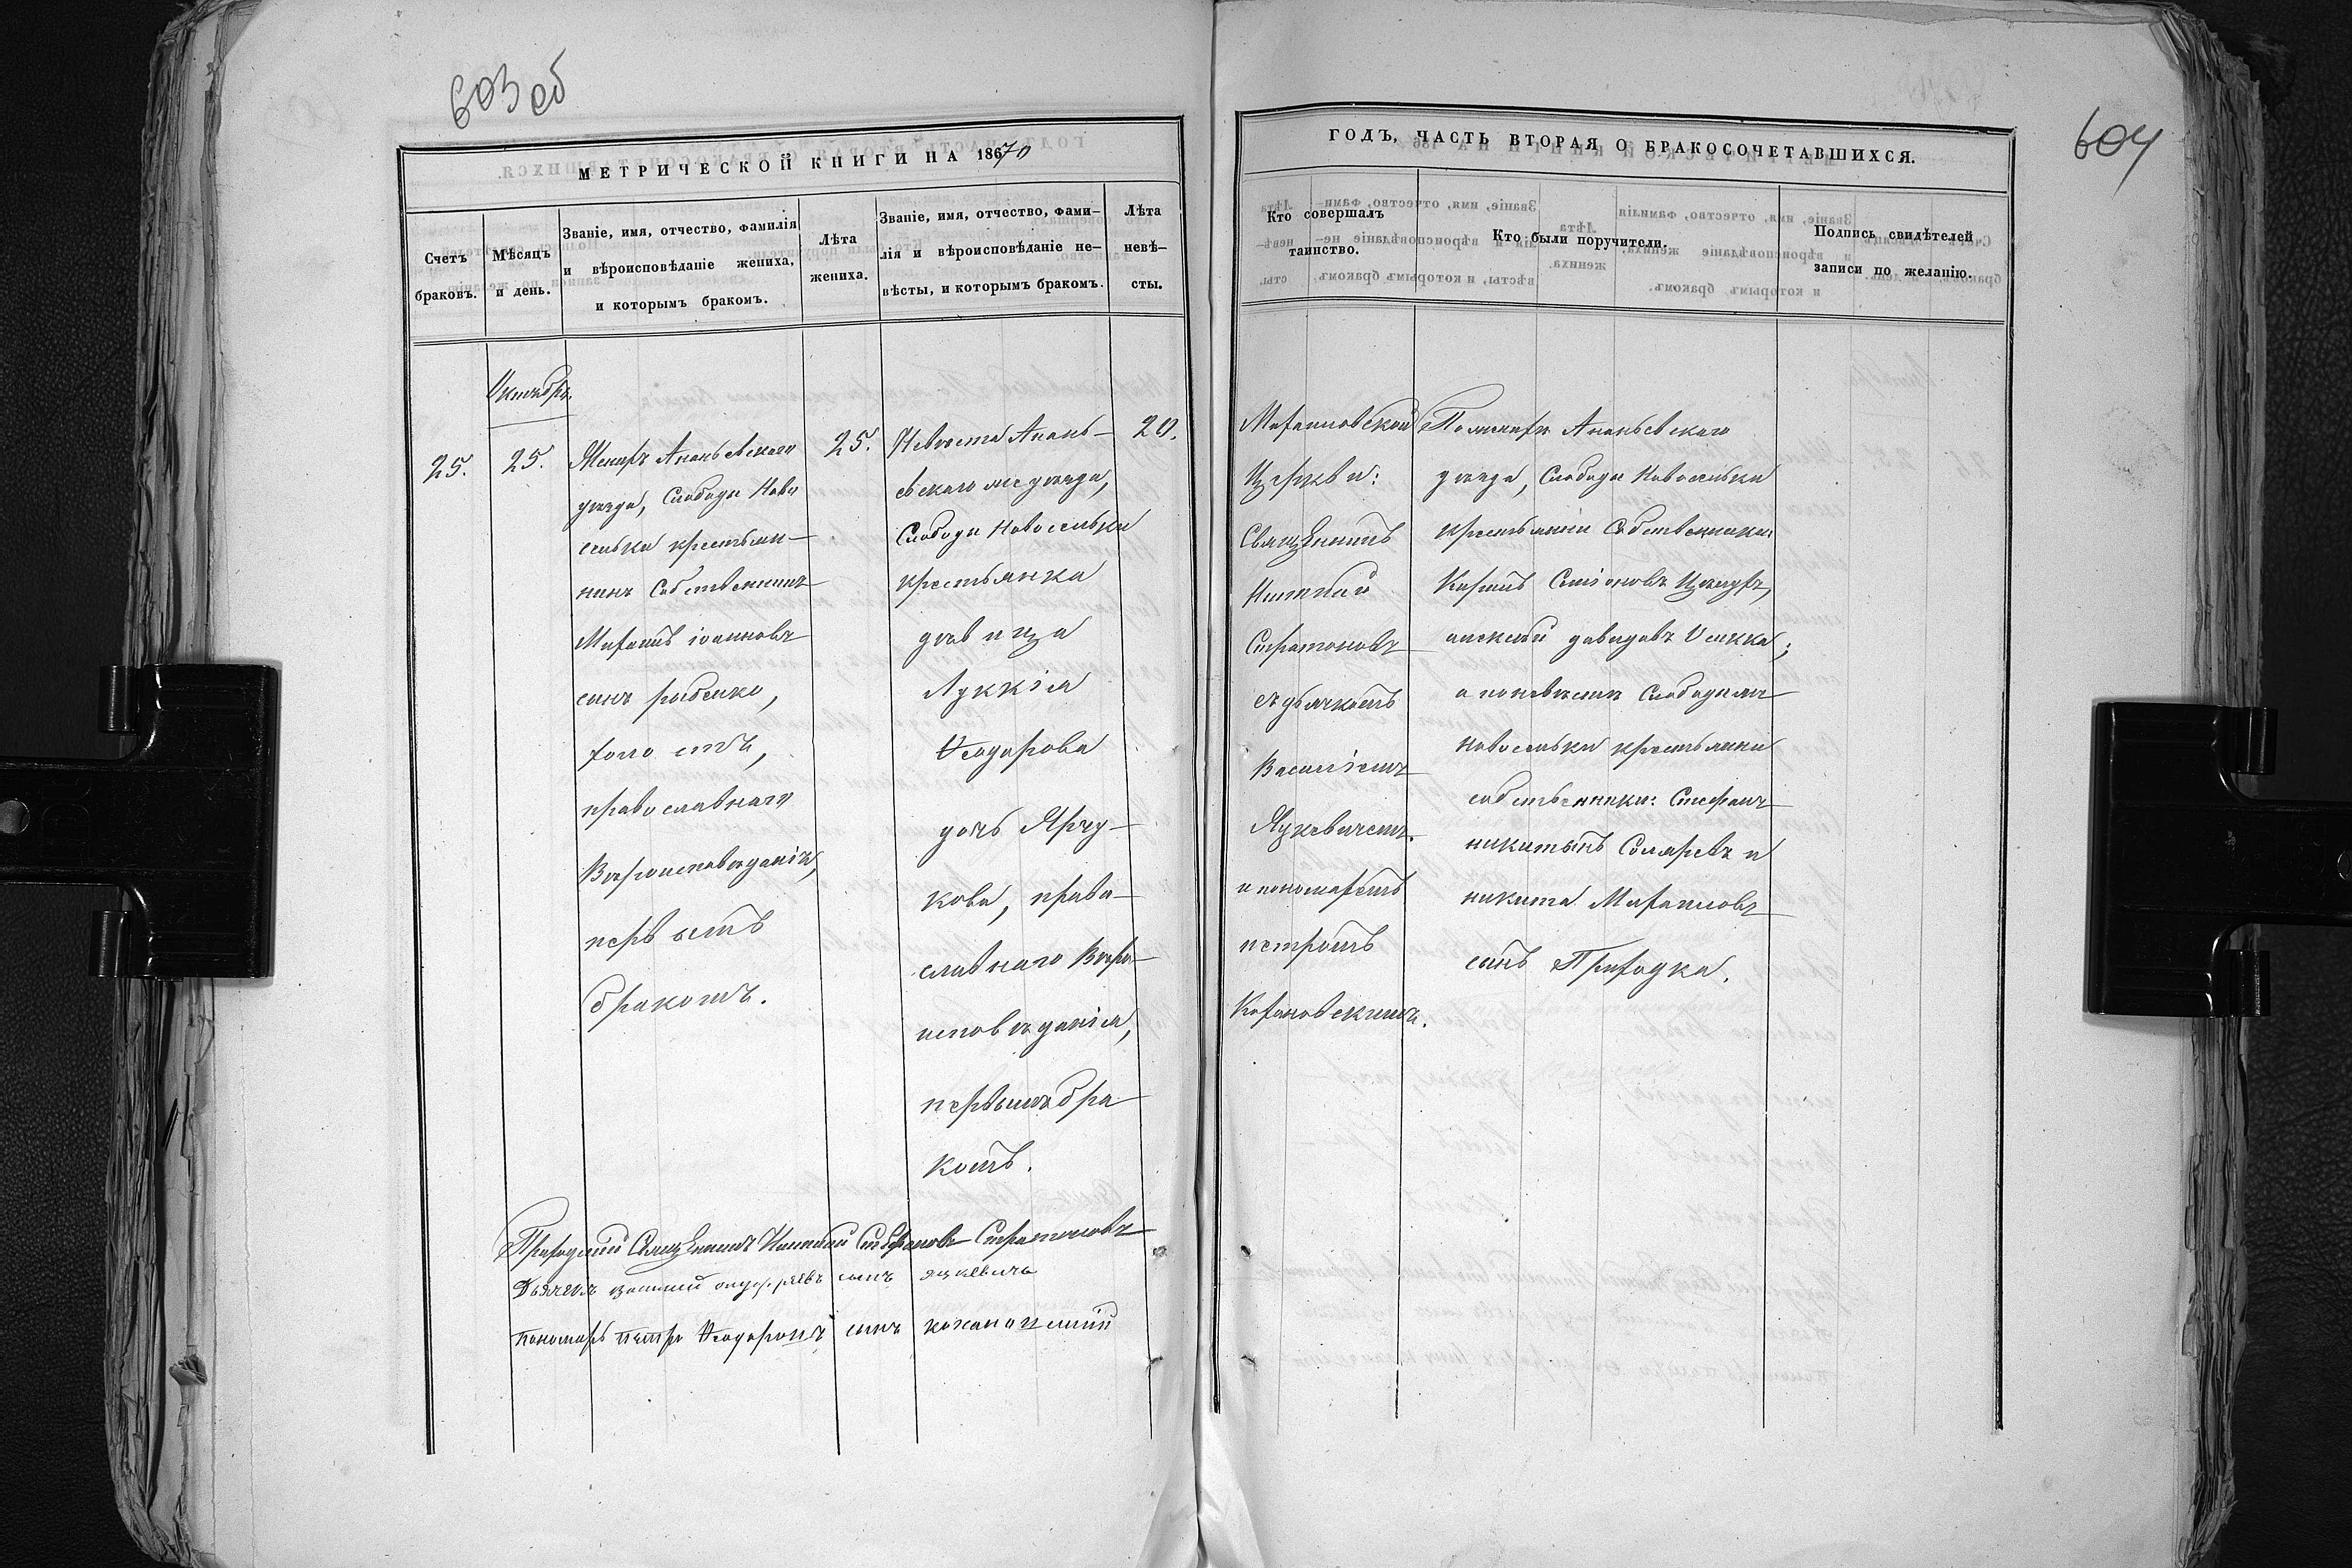 603 об
604
МЕТРИЧЕСКОЙ КНИГИ НА 1870
ГОДЪ, ЧАСТЬ ВТОРАЯ О БРАКОСОЧЕТАВШИХСЯ.
Счетъ
браковъ.
Мѣсяцъ
и день.
Званіе, имя, отчество, фамилія
и вѣроисповѣданіе жениха,
и которымъ бракомъ.
Лѣта
жениха.
Званіе, имя, отчество, фами-
лія и вѣроисповѣданіе не-
вѣсты, и которымъ бракомъ.
Лѣта
невѣ-
сты.
Кто совершалъ
таинство.
Кто были поручители.
Подпись свидѣтелей
записи по желанію.
25.
Октябрь
25.
Жених Ананьевскаго
уѣзда, Слободы Ново
сельки крестьян-
нинъ Собственникъ
Іоанновъ
сынъ
православнаго
Вѣроисповѣданія,
первымъ
бракомъ.
25.
Невѣста Анань-
евскаго же уѣзда,
Слободы Новосельки
крестьянка
дѣвица
Луккія
Ѳеодорова
дочь Ярчу-
кова, право-
славнаго Вѣро-
исповѣданія,
первымъ бра
комъ.
20.
Михайловской
Церкви:
Священникъ
Стратоновъ
съ дьячкомъ
Василіемъ
Яцкевичемъ
и пономаремъ
петромъ
Кохановскимъ.
По женихѣ Ананьевскаго
уѣзда, Слободы Новосельки
крестьяне Собственники:
алексѣй давидовъ
а по невѣстѣ Слободы
новосельки крестьяне
собственники: Стефанъ
никитынъ и
никита Михайловъ
сынъ Приходка.
Приходскій Священникъ Стефановъ Стратоновъ
Дьячекъ василий сынъ яцкевичъ
пономарь петръ Ѳеодоровъ сынъ кохановский